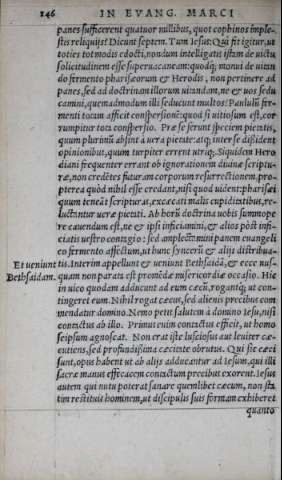 146 IN EVANG. MARCI
panes sufficerent quatuor millibus, quot cophinos imple-
stis reliquijs? Dicunt septem. Tum Iesus: Qui fit igitur, ut
toties tot modis edocti, nondum intelligatis istam de uictu
solicitudinem esse superuacaneam: quodq; monui de uitan
do fermento pharisæorum & Herodis, non pertinere ad
panes, sed ad doctrinam illorum uitandam, ne & uos sedu
camini, quemadmodum illi seducunt multos? Paululũ fer-
menti totam afficit conspersionẽ: quod si uitiosum est, cor
rumpitur tota conspersio. Præ se ferunt speciem pietatis,
quum plurimũ absint à uera pietate: atq; inter se dissident
opinionibus, quum turpiter errent utriq;. Siquidem Hero
diani frequenter errant ob ignorationem diuinæ scriptu-
ræ, non credẽtes futuram corporum resurrectionem, pro-
pterea quòd nihil esse credant, nisi quod uident: pharisæi
quum teneãt scripturas, excæcati malis cupiditatibus, re-
luctantur ueræ pietati. Ab horũ doctrina uobis summope
re cauendum est, ne & ipsi inficiamini, & alios pòst infi-
ciatis uestro contagio: sed amplectimini panem euangeli
co fermento affectum, ut hunc syncerũ & alijs distribua-
Et ueniunt tis. Interim appellunt & ueniunt Bethsaidã, & ecce nus-
Bethsaidam. quam non parata est promẽdæ misericordiæ occasio. Hic
in uico quodam adducunt ad eum cæcũ, rogantq; ut con-
tingeret eum. Nihil rogat cæcus, sed alienis precibus com
mendatur domino. Nemo petit salutem à domino Iesu, nisi
contactus ab illo. Primus enim contactus efficit, ut homo
seipsum agnoscat. Non erat iste lusciosus aut leuiter cæ-
cutiens, sed profundissima cæcitate obrutus. Qui sic cæci
sunt, opus habent ut ab alijs adducantur ad Iesum, qui illi
sacræ manus efficacem contactum precibus exorent. Iesus
autem qui nutu poterat sanare quemlibet cæcum, non sta
tim restituit hominem, ut discipulis suis formam exhiberet
quanto